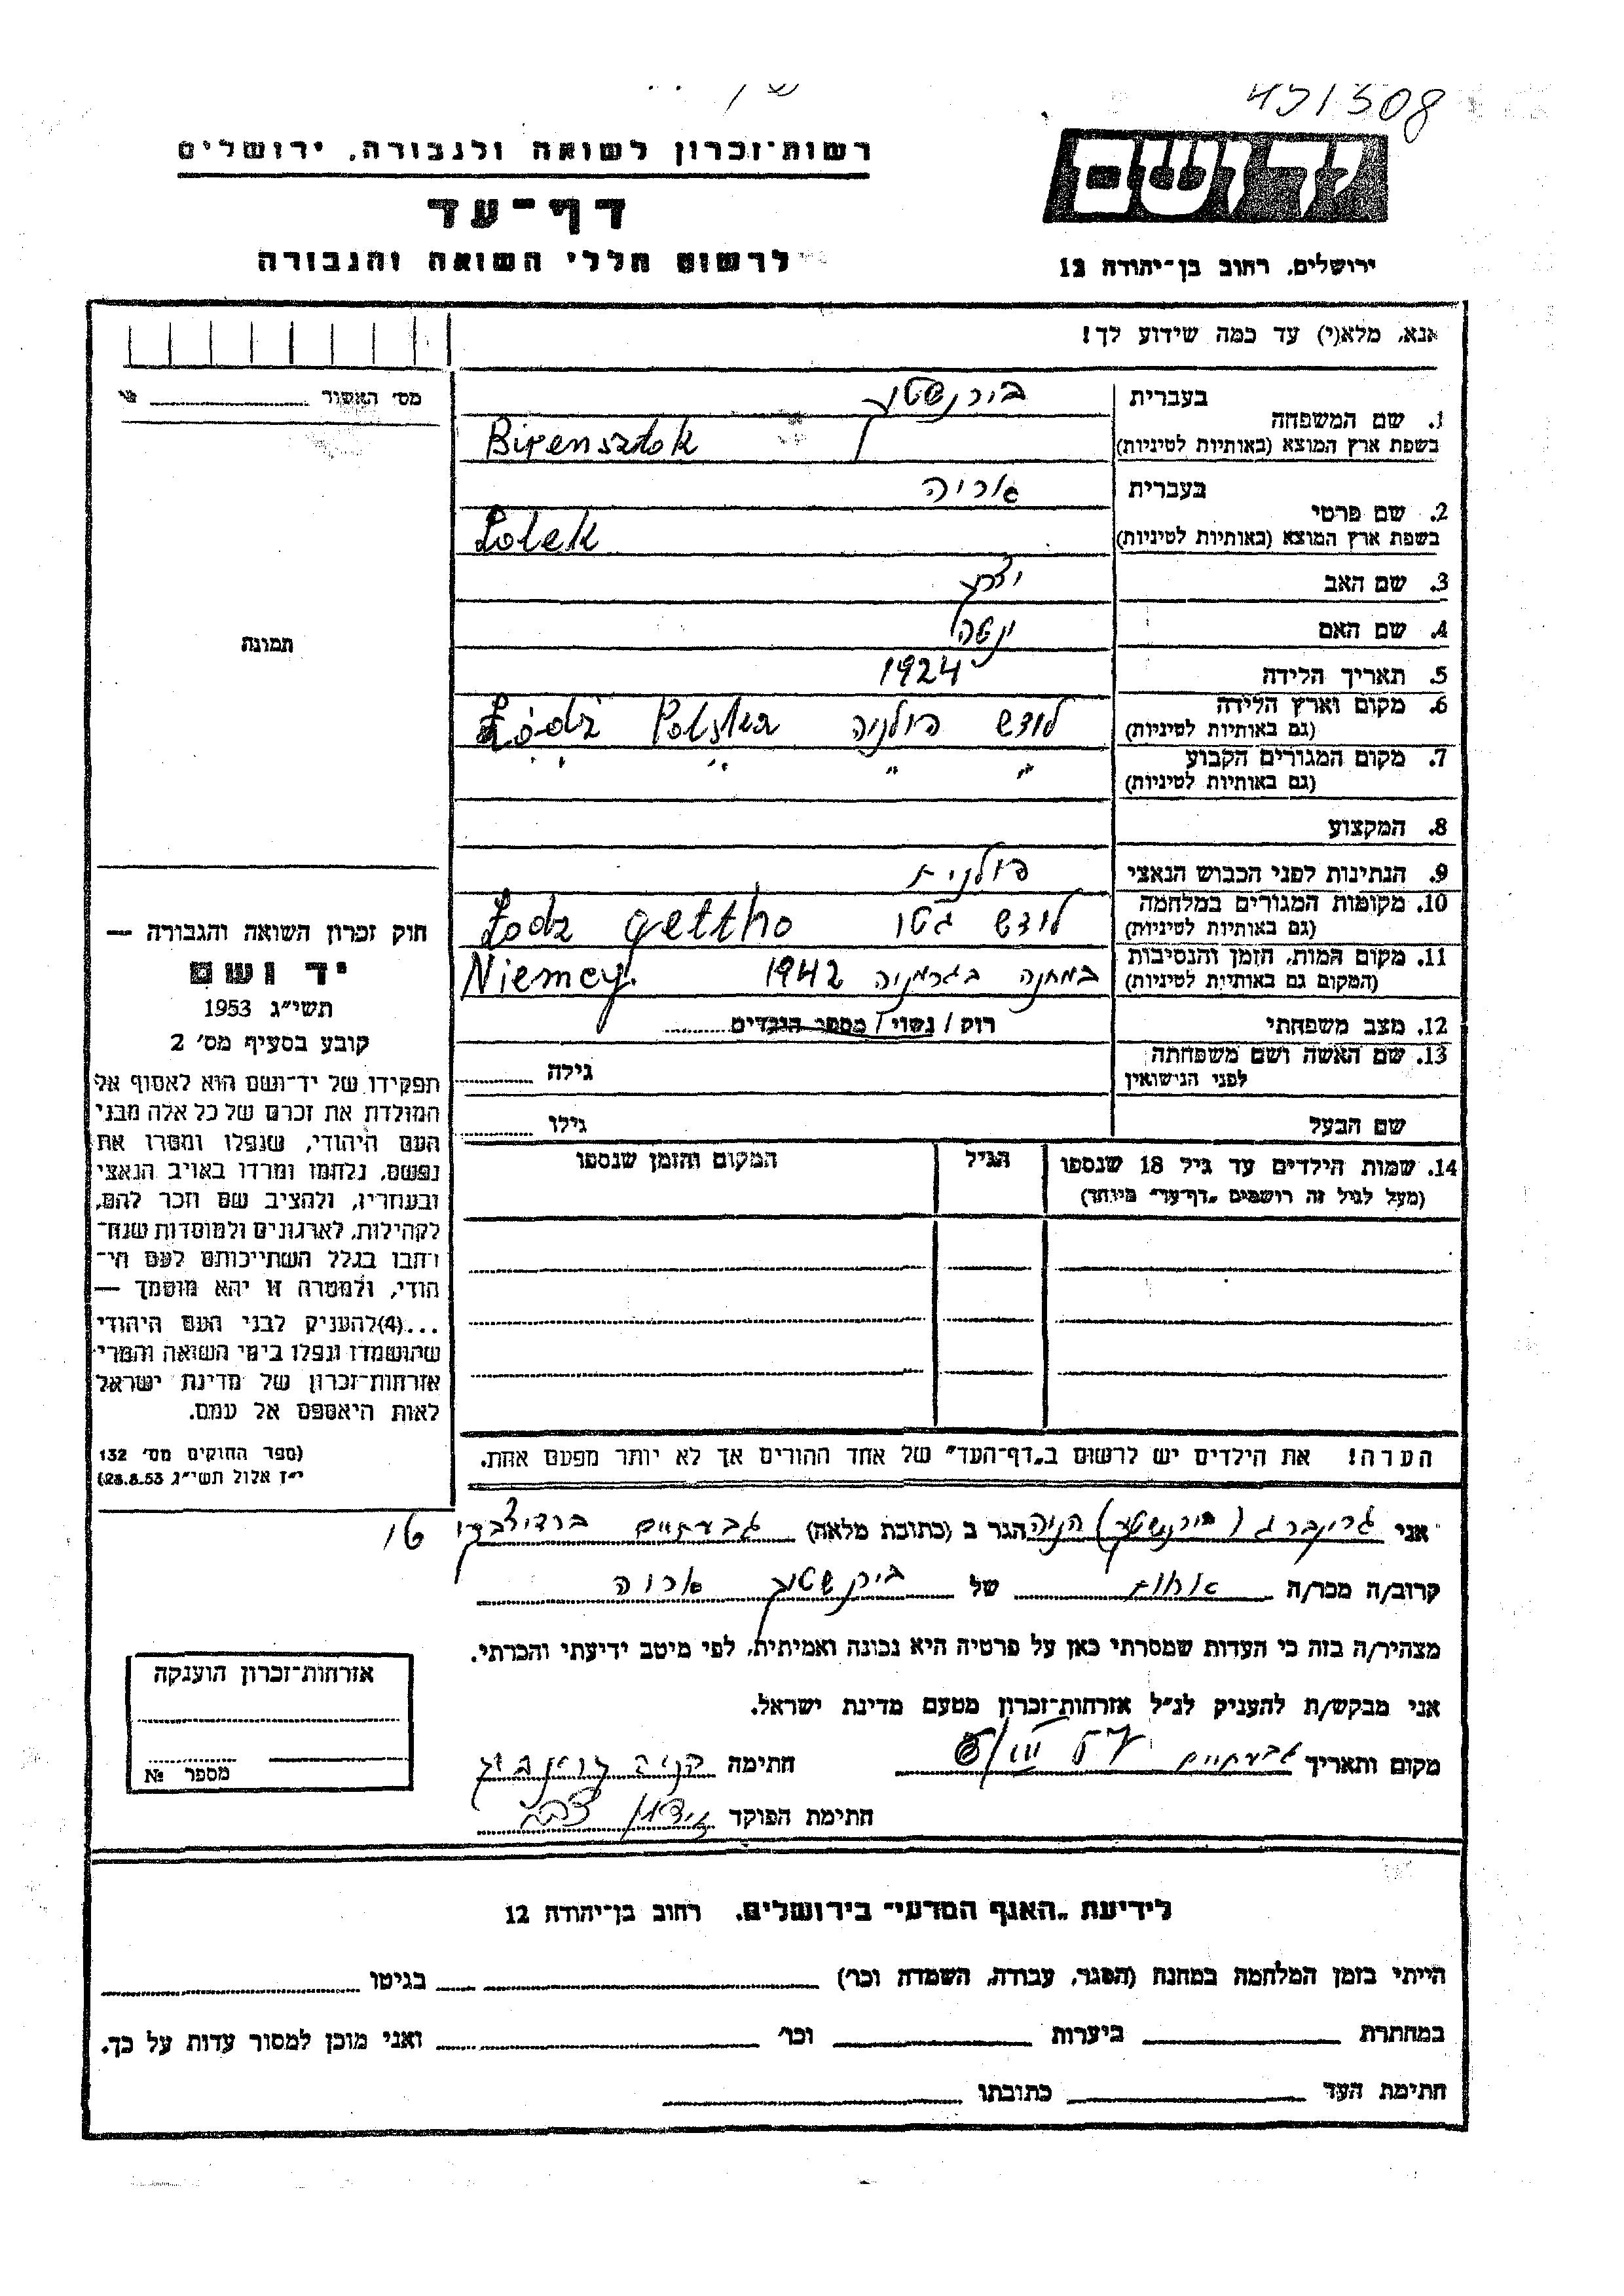 451508
רשות־זכרון לשואה ולגבורה, ירושלים
דף־עד
לרשום חללי השואה והגבורה
יד ושם
ירושלים, רחוב בן־יהודה 12
אנא, מלא(י) עד כמה שידוע לך!
מס׳ האשור
בעברית בירנשטוק
1. שם המשפחה
בשפת ארץ המוצא (באותיות לטיניות) Birensztok
בעברית אריה
2. שם פרטי
בשפת ארץ המוצא (באותיות לטיניות) Lolek
3. שם האב יצחק
4. שם האם
5. תאריך הלידה 1924
6. מקום וארץ הלידה
(גם באותיות לטיניות) לודש פולניה Polska Łódź
7. מקום המגורים הקבוע
(גם באותיות לטיניות) " " " "
8. המקצוע
9. הנתינות לפני הכבוש הנאצי פולנית
10. מקומות המגורים במלחמה
(גם באותיות לטיניות) לודש גטו Łodz gettho
11. מקום המות, הזמן והנסיבות
(המקום גם באותיות לטיניות) במחנה בגרמניה 1942 Niemcy.
12. מצב משפחתי רווק / נשוי / מספר הילדים
13. שם האשה ושם משפחתה
לפני הנישואין גילה
שם הבעל גילו
14. שמות הילדים עד גיל 18 שנספו הגיל המקום והזמן שנספו
(מעל לגיל זה רושמים „דף־עד" מיוחד)
הערה! את הילדים יש לרשום ב„דף־העד" של אחד ההורים אך לא יותר מפעם אחת.
תמונה
חוק זכרון השואה והגבורה —
יד ושם
תשי״ג 1953
קובע בסעיף מס׳ 2
תפקידו של יד־ושם הוא לאסוף אל
המולדת את זכרם של כל אלה מבני
העם היהודי, שנפלו ומסרו את
נפשם, נלחמו ומרדו באויב הנאצי
ובעוזריו, ולהציב שם וזכר להם,
לקהילות, לארגונים ולמוסדות שנח־
רבו בגלל השתייכותם לעם הי־
הודי, ולמטרה זו יהא מוסמך —
...(4)להעניק לבני העם היהודי
שהושמדו ונפלו בימי השואה והמרי
אזרחות־זכרון של מדינת ישראל
לאות היאספם אל עמם.
(ספר החוקים מס׳ 132
י״ז אלול תשי״ג 28.8.53)
אני גרינברג (בירנשטוק) הניה הגר ב (כתובת מלאה) גבעתיים ברדיצבסקי 16
קרוב/ה מכר/ה אחות של בירנשטוק אריה
מצהיר/ה בזה כי העדות שמסרתי כאן על פרטיה היא נכונה ואמיתית, לפי מיטב ידיעתי והכרתי.
אני מבקש/ת להעניק לנ״ל אזרחות־זכרון מטעם מדינת ישראל.
מקום ותאריך גבעתיים חתימה הניה גרינברג
חתימת הפוקד
אזרחות־זכרון הוענקה
מספר №
לידיעת „האגף המדעי" בירושלים, רחוב בן־יהודה 12
הייתי בזמן המלחמה במחנה (הסגר, עבודה, השמדה וכו׳) בגיטו
במחתרת ביערות וכו׳ ואני מוכן למסור עדות על כך.
חתימת העד כתובתו